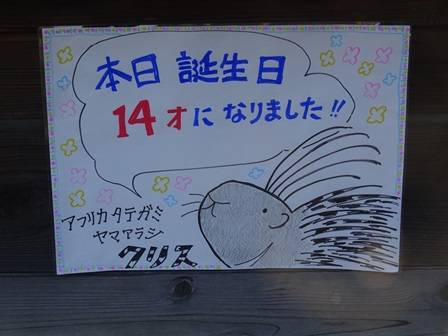 本日 誕生日
14才になりました!!
アフリカタテガミ
ヤマアラシ
クリス